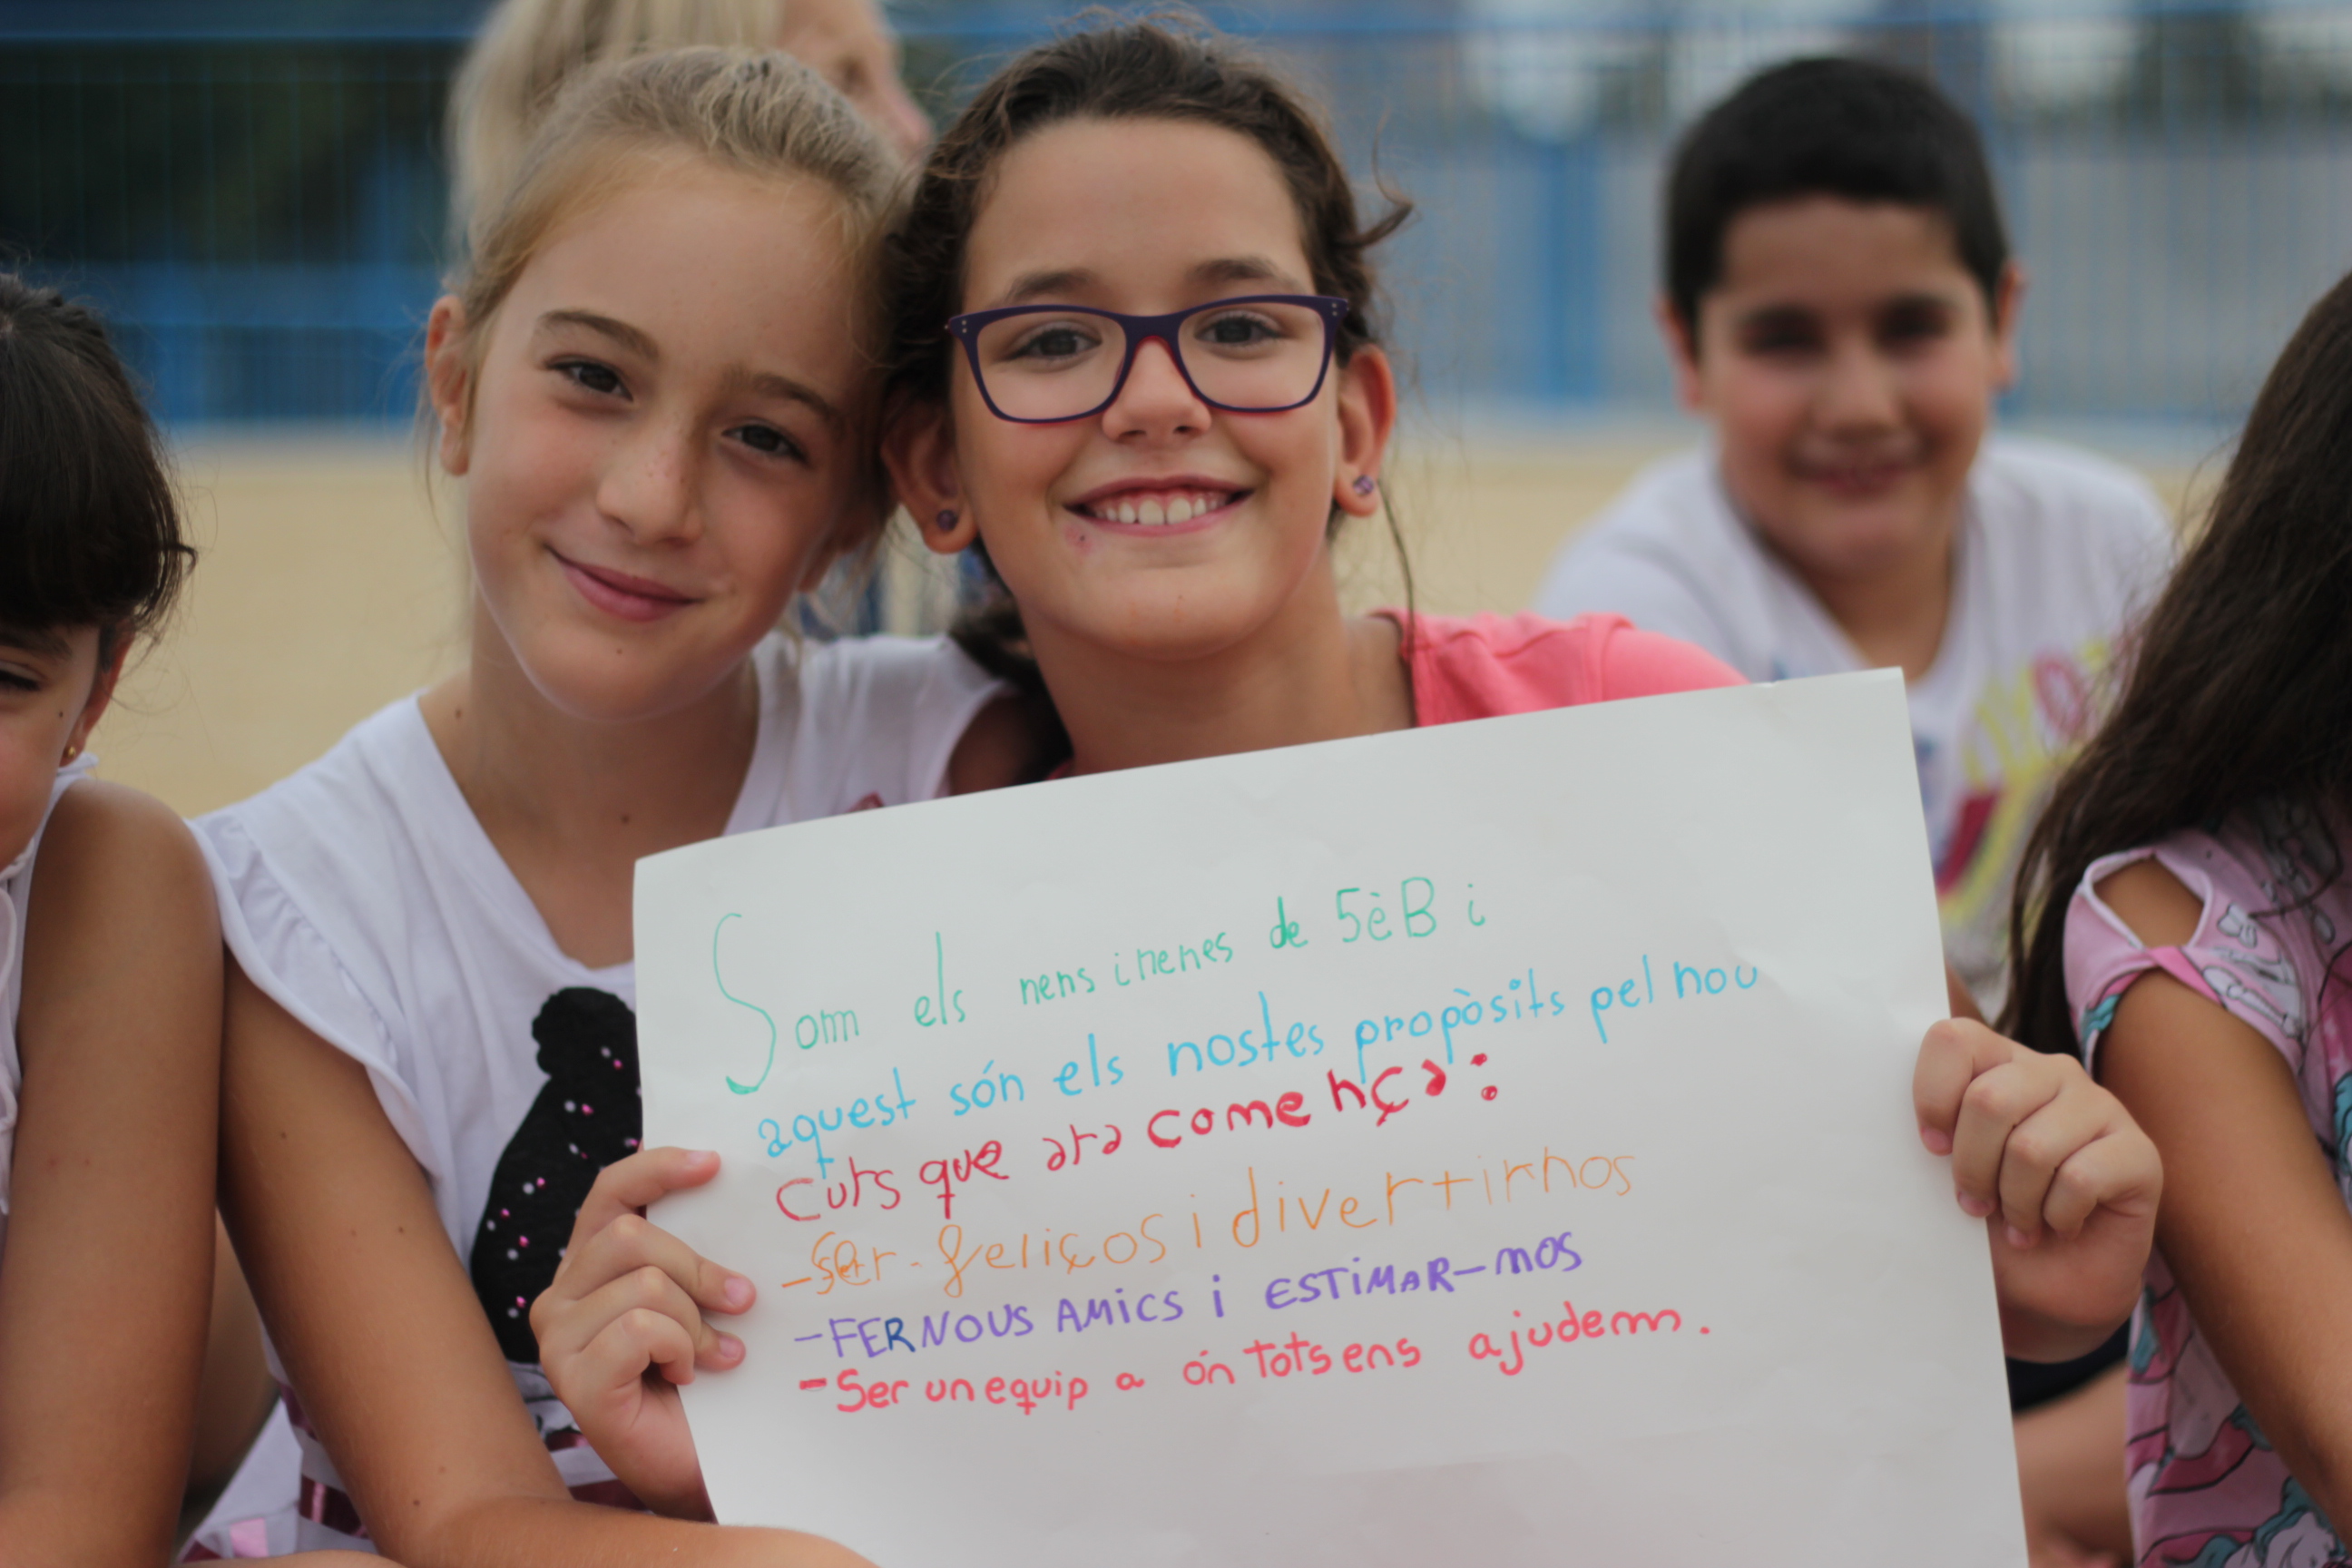 Som els nens i nenes de 5è B i
aquest són els nostes propòsits pel nou
curs que ara comença:
- Ser feliços i divertirnos
- FER NOUS AMICS i ESTIMAR-nos
- Ser un equip a ón tots ens ajudem.